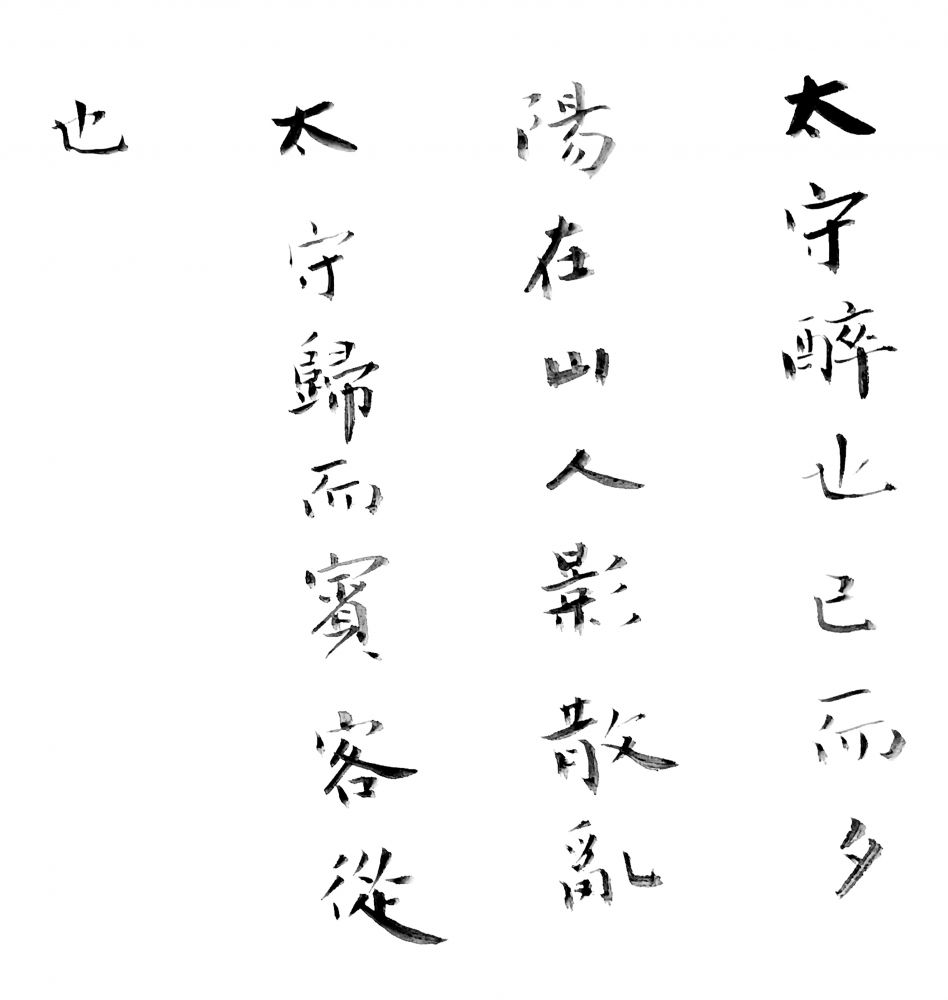 太守醉也已而夕
陽在山人影散亂
太守歸而賓客從
也